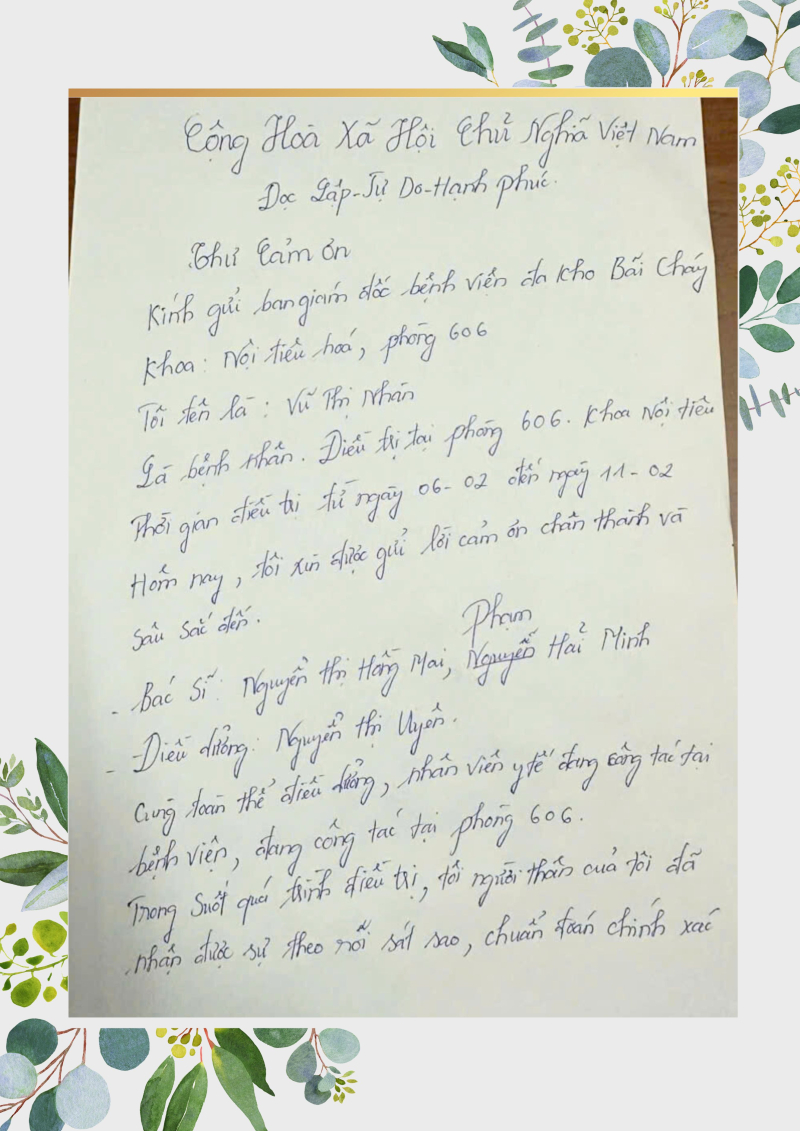 Cộng Hoà Xã Hội Chủ Nghĩa Việt Nam
Độc Lập-Tự Do-Hạnh Phúc.
Thư Cảm ơn
Kính gửi ban giám đốc bệnh viện đa kho Bãi Cháy
Khoa: Nội tiêu hoá, phòng 606
Tôi tên là: Vũ Thị Nhàn
Là bệnh nhân. Điều trị tại phòng 606. Khoa Nội tiêu
Thời gian điều trị từ ngày 06-02 đến ngày 11-02
Hôm nay, tôi xin được gửi lời cảm ơn chân thành và
sâu sắc đến.
Phạm
- Bác Sĩ: Nguyễn thị Hồng Mai, Nguyễn Hải Minh
- Điều dưỡng: Nguyễn thị Uyên.
Cùng toàn thể điều dưỡng, nhân viên y tế đang công tác tại
bệnh viện, đang công tác tại phòng 606.
Trong suốt quá trình điều trị, tôi người thân của tôi đã
nhận được sự theo rõi sát sao, chuẩn đoán chính xác